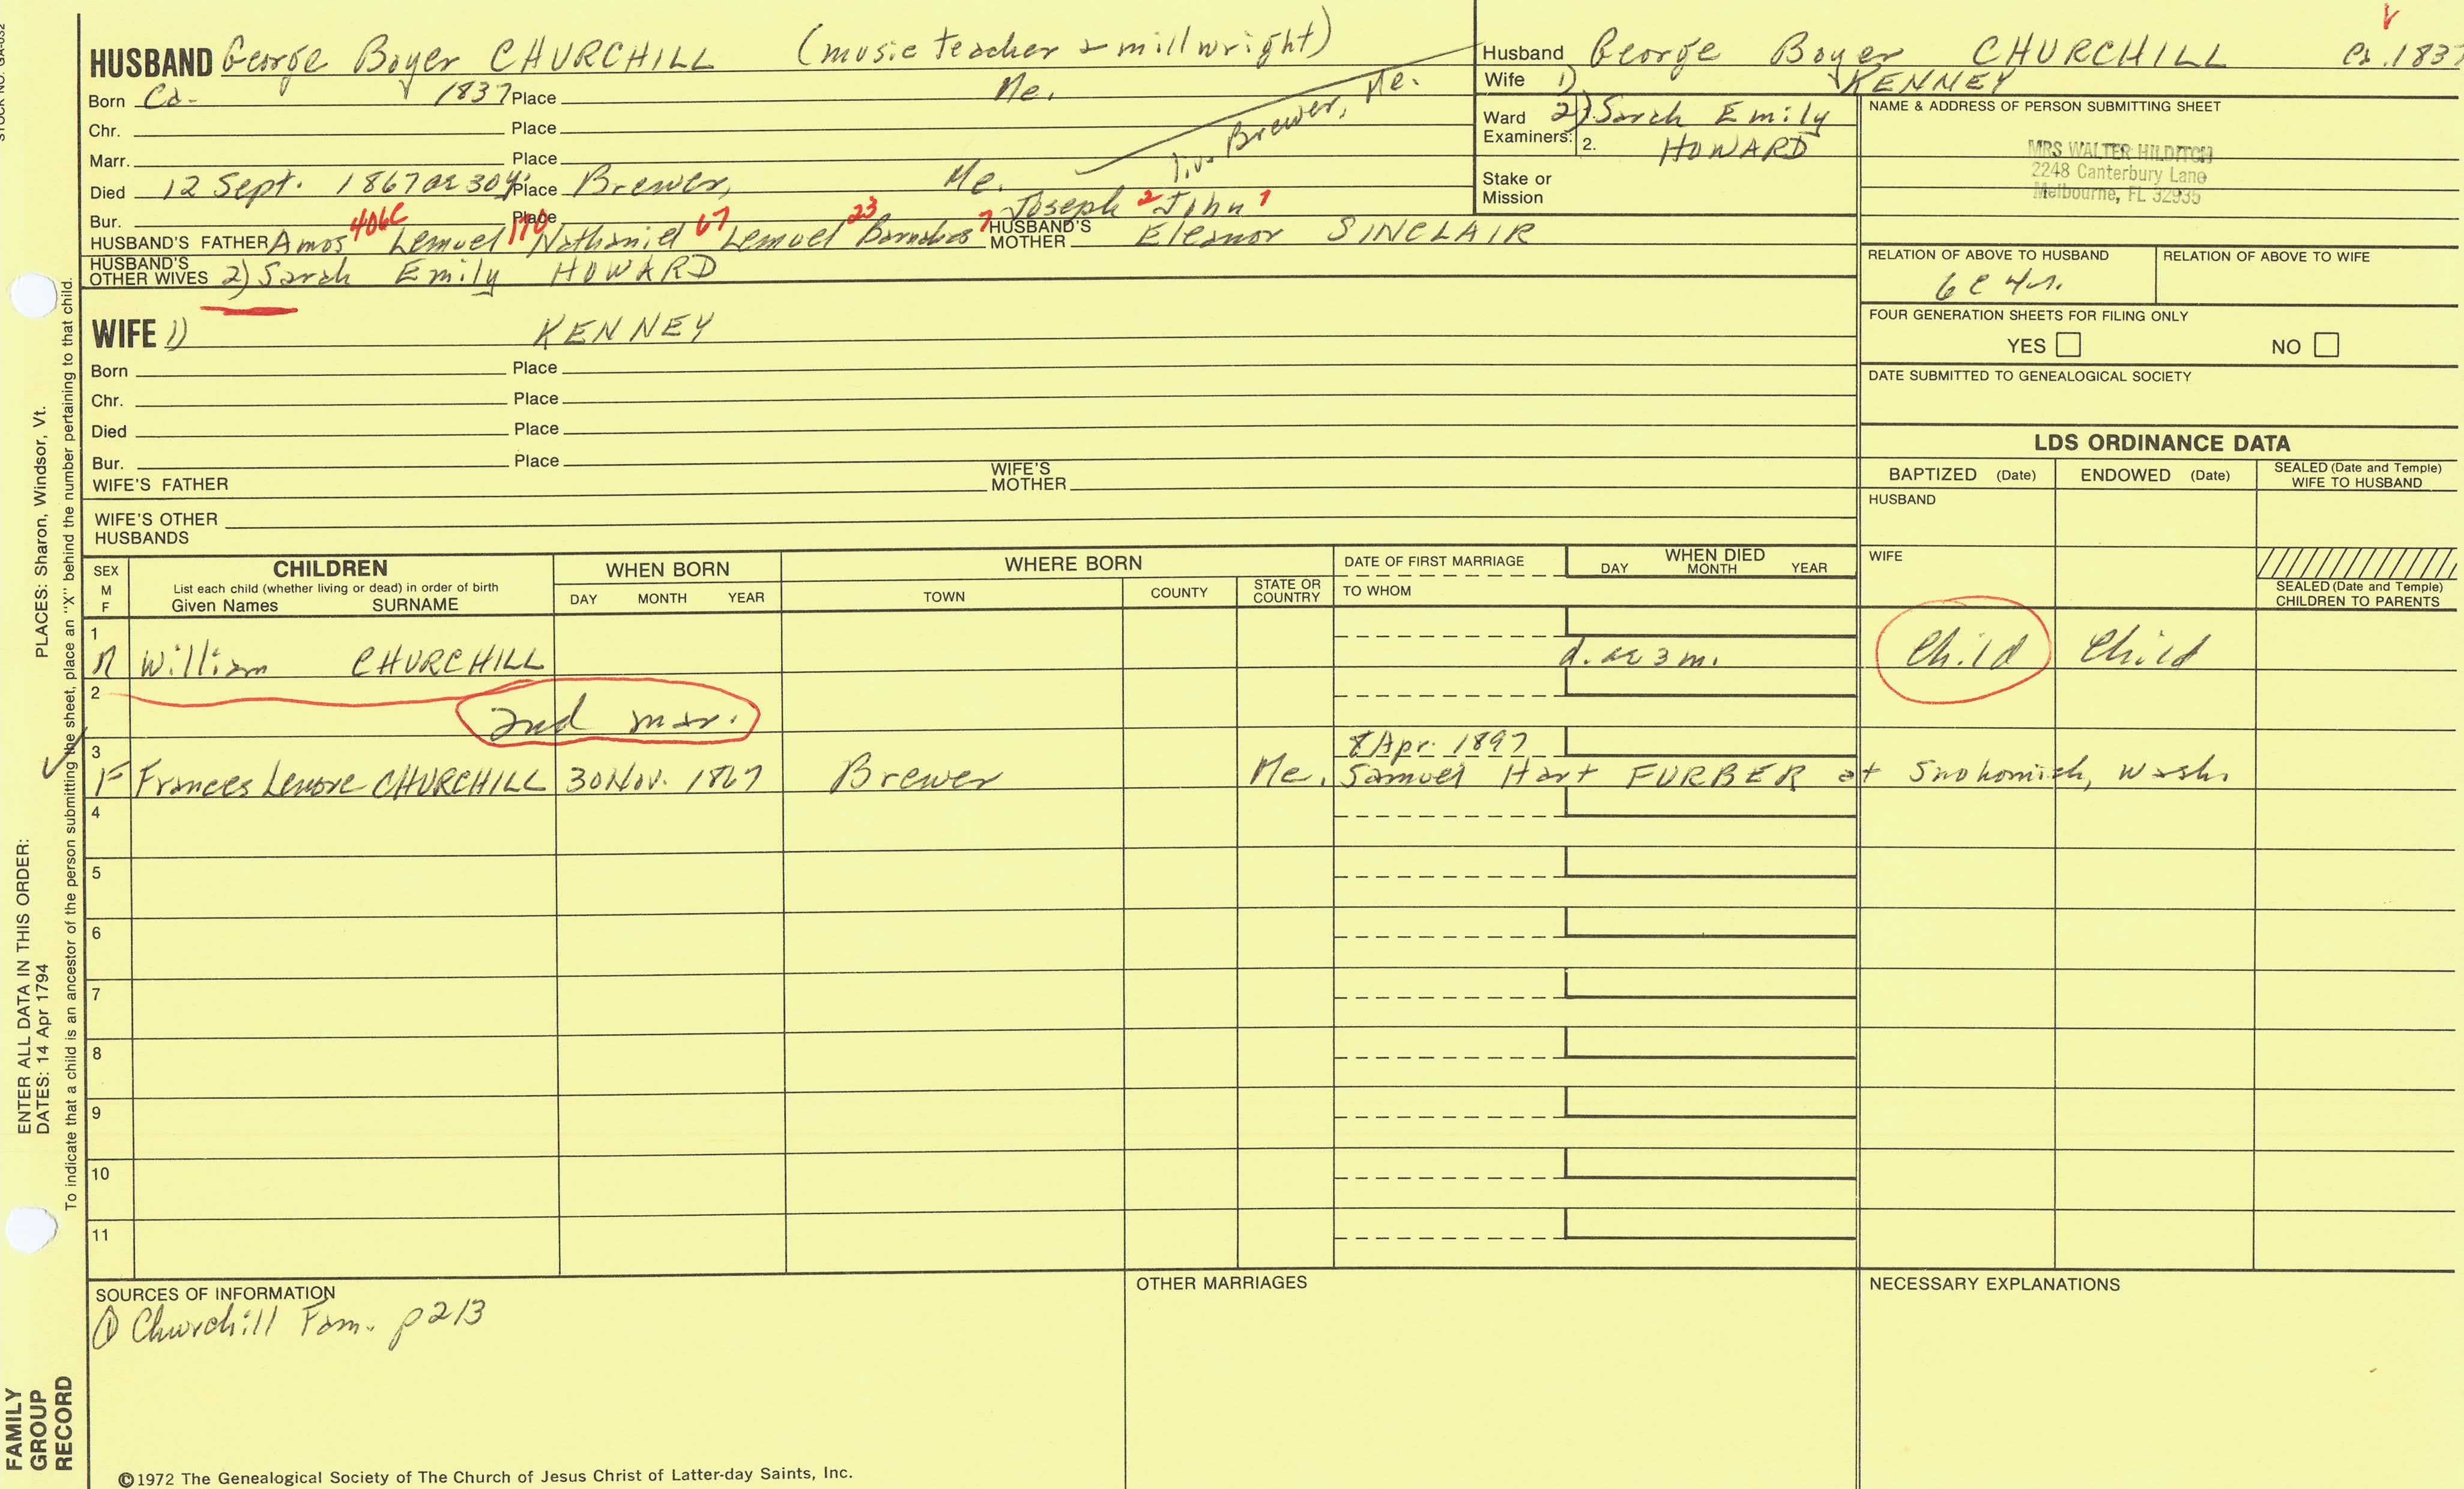 STOCK NO. GA-032
HUSBAND George Boyer CHURCHILL (music teacher & millwright)
Born Ca. 1837 Place Me.
Chr. Place
Marr. Place
liv. Brewer, Me.
Died 12 Sept. 1867 ae 30y. Place Brewer, Me.
Bur. Place
Joseph 2 John 1
HUSBAND'S FATHER Amos 406C Lemuel 170 Nathaniel 67 Lemuel 23 Barnabas 7 HUSBAND'S MOTHER Eleanor SINCLAIR
HUSBAND'S OTHER WIVES 2) Sarah Emily HOWARD
WIFE 1) KENNEY
Born Place
Chr. Place
Died Place
Bur. Place
WIFE'S FATHER WIFE'S MOTHER
WIFE'S OTHER HUSBANDS
Husband George Boyer CHURCHILL Ca. 1837
Wife 1) KENNEY
Ward 2) Sarah Emily
Examiners: 2. HOWARD
Stake or
Mission
NAME & ADDRESS OF PERSON SUBMITTING SHEET
MRS WALTER HILDITCH
2248 Canterbury Lane
Melbourne, FL 32935
RELATION OF ABOVE TO HUSBAND RELATION OF ABOVE TO WIFE
6c 4r.
FOUR GENERATION SHEETS FOR FILING ONLY
YES NO
DATE SUBMITTED TO GENEALOGICAL SOCIETY
LDS ORDINANCE DATA
BAPTIZED (Date) ENDOWED (Date) SEALED (Date and Temple) WIFE TO HUSBAND
HUSBAND
WIFE
SEALED (Date and Temple) CHILDREN TO PARENTS
SEX M F CHILDREN WHEN BORN WHERE BORN DATE OF FIRST MARRIAGE WHEN DIED
List each child (whether living or dead) in order of birth
Given Names SURNAME DAY MONTH YEAR TOWN COUNTY STATE OR COUNTRY TO WHOM DAY MONTH YEAR
1
M William CHURCHILL d. ae 3 m. Child Child
2
2nd mar.
3 8 Apr. 1897
F Frances Lenore CHURCHILL 30 Nov. 1867 Brewer Me. Samuel Hart FURBER at Snohomish, Wash.
4
5
6
7
8
9
10
11
SOURCES OF INFORMATION OTHER MARRIAGES NECESSARY EXPLANATIONS
① Churchill Fam. p213
©1972 The Genealogical Society of The Church of Jesus Christ of Latter-day Saints, Inc.
ENTER ALL DATA IN THIS ORDER:
DATES: 14 Apr 1794 PLACES: Sharon, Windsor, Vt.
To indicate that a child is an ancestor of the person submitting the sheet, place an "X" behind the number pertaining to that child.
FAMILY
GROUP
RECORD